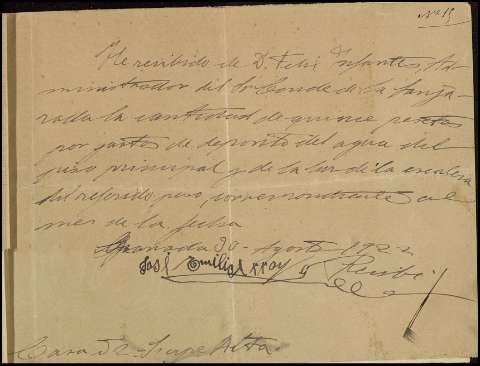 Nº 15
He recibido de D. Felix Infantes, Ad-
ministrador del Sr Conde de la Jarosa
la cantidad de quince pesetas
por gastos de deposito del agua del
piso principal y de la luz de la escalera
del referido piso, correspondiente al
mes de la fecha
Granada 30 Agosto 1922
José Emilio
Recibí
Casa